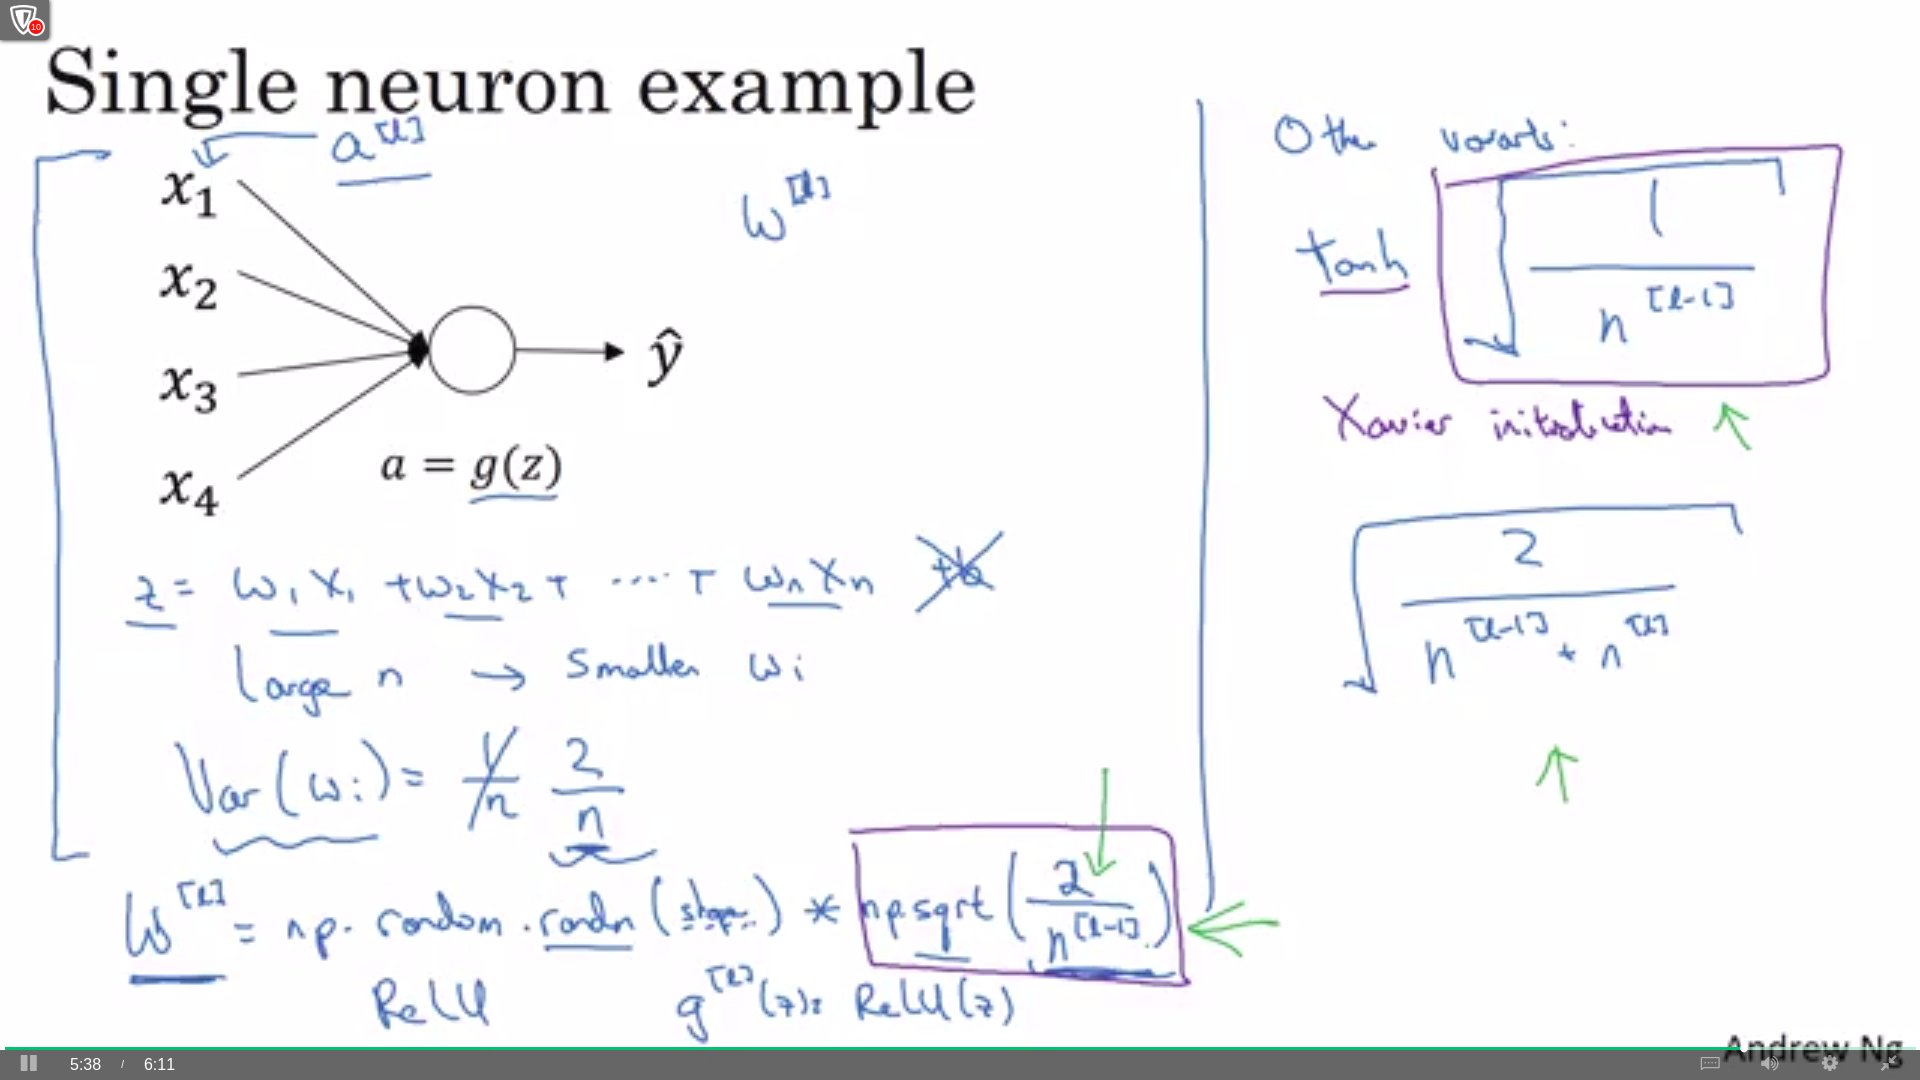 10
Single neuron example
a^[l]
x₁
x₂
x₃
x₄
W^[l]
ŷ
a = g(z)
z = w₁x₁ + w₂x₂ + ... + wₙxₙ +b
Large n → Smaller wᵢ
Var(wᵢ) = 1/n 2/n
W^[l] = np.random.randn(shape) * np.sqrt(2/n^[l-1])
ReLU g^[l](z) = ReLU(z)
Other variants:
tanh √(1/n^[l-1])
Xavier initialization
√(2/(n^[l-1] * n^[l]))
Andrew Ng
5:38 / 6:11